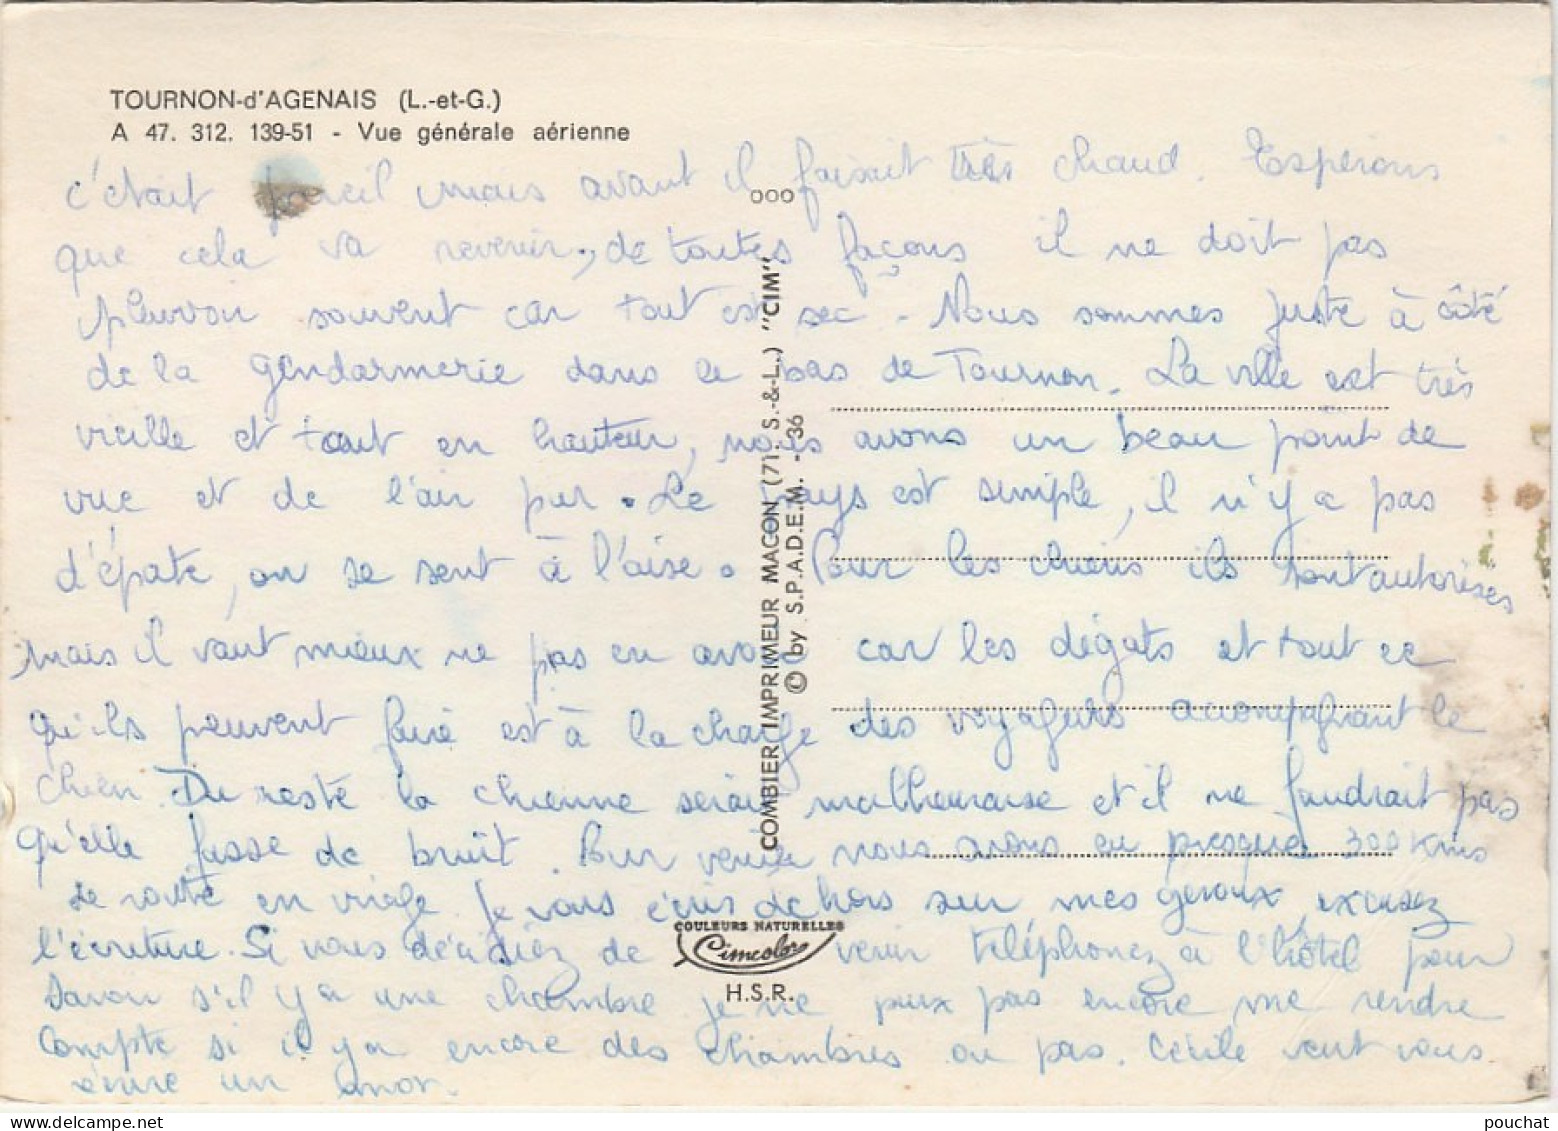 TOURNON-d'AGENAIS (L.-et-G.)
A 47. 312. 139-51 - Vue générale aérienne
c'était pareil mais avant il faisait très chaud. Espérons
que cela va revenir, de toutes façons il ne doit pas
pleuvoir souvent car tout est sec. Nous sommes juste à côté
de la gendarmerie dans le bas de Tournon. La ville est très
vieille et tout en hauteur, nous avons un beau point de
vue et de l'air pur. Le pays est simple, il n'y a pas
d'épate, on se sent à l'aise. Pour les chiens ils sont autorisés
mais il vaut mieux ne pas en avoir car les dégats et tout ce
qu'ils peuvent faire est à la charge des voyageurs accompagnant le
chien. Du reste la chienne serait malheureuse et il ne faudrait pas
qu'elle fasse de bruit. Pour venir nous avons eu presque 300 Kms
de route en virage. Je vous écris dehors sur mes genoux, excusez
l'écriture. Si vous décidiez de venir téléphonez à l'hôtel pour
savoir s'il y a une chambre je ne peux pas encore me rendre
compte si il y a encore des chambres ou pas. Cécile veut vous
écrire un mot.
ooo
COMBIER IMPRIMEUR MACON (71. S.-&-L.) "CIM"
© by S.P.A.D.E.M. - 36
COULEURS NATURELLES
Cimcolor
H.S.R.
pouchat